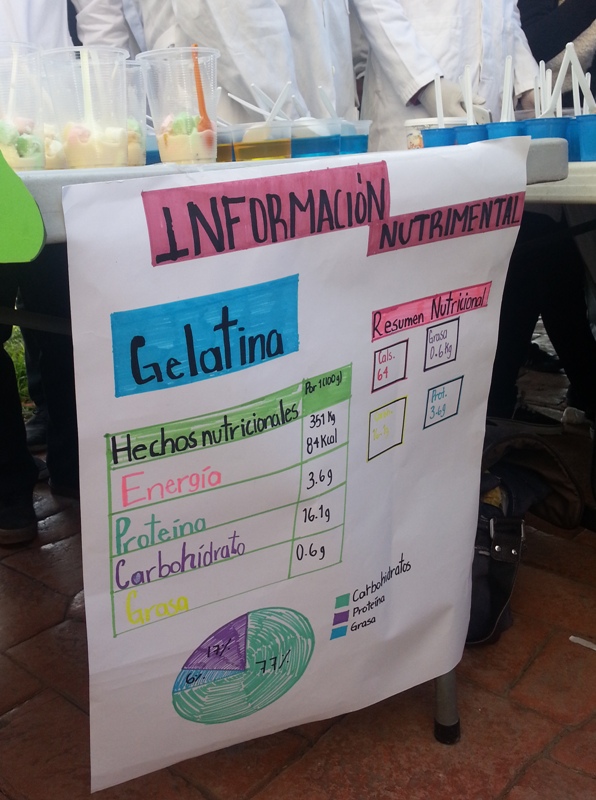 INFORMACIÓN
NUTRIMENTAL
Gelatina
Resumen Nutricional
Cals.
64
Grasa
0.6Kg
Prot.
3.6g
Por 1 (100g)
Hechos nutricionales
351 Kg
84 Kcal
Energía
3.6g
Proteína
16.1g
Carbohidrato
0.6g
Grasa
Carbohidratos
Proteína
Grasa
17%
6%
77%